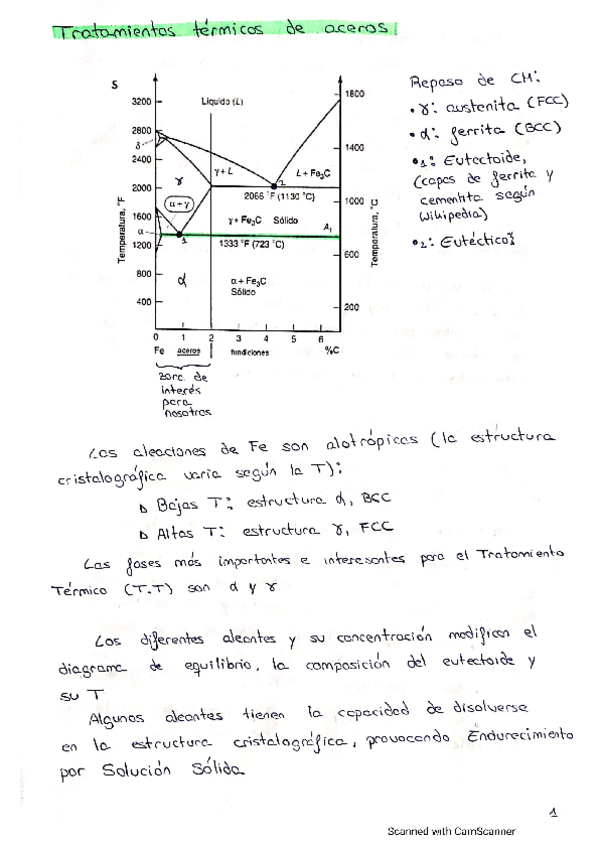 Tratamientos térmicos de aceros
S
Líquido (L)
3200
2800
2400
2000
1600
1200
800
400
Temperatura, °F
δ
γ
α+γ
α
1
α
γ+L
2
L+Fe₃C
2066 °F (1130 °C)
γ+Fe₃C Sólido
A₁
1333 °F (723 °C)
α+Fe₃C
Sólido
1800
1400
1000
600
200
Temperatura, °C
0 1 2 3 4 5 6
Fe aceros fundiciones %C
zona de
interés
para
nosotros
Repaso de CM:
• γ: austenita (FCC)
• α: ferrita (BCC)
• 1: Eutectoide,
(capas de ferrita y
cementita según
Wikipedia)
• 2: Eutéctico
Las aleaciones de Fe son alotrópicas (la estructura
cristalográfica varia según la T):
▷ Bajas T: estructura α, BCC
▷ Altas T: estructura γ, FCC
Las fases más importantes e interesantes para el Tratamiento
Térmico (T.T) son α y γ
Los diferentes aleantes y su concentración modifican el
diagrama de equilibrio, la composición del eutectoide y
su T
Algunos aleantes tienen la capacidad de disolverse
en la estructura cristalográfica, provocando Endurecimiento
por Solución Sólida
1
Scanned with CamScanner